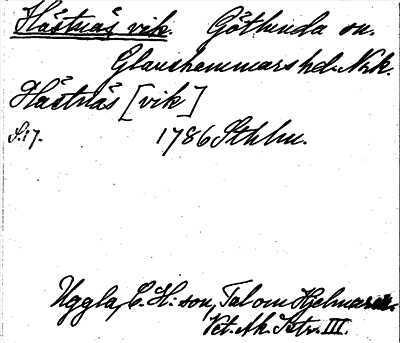 Hästnäs vik. Götlunda sn.
Glanshammars hd. Nrk.
Hästnäs [vik]
S. 17. 1786 Sthlm.
Uggla, C. H:son, Tal om Hjelmaren.
Vet. Ak. Istr. III.